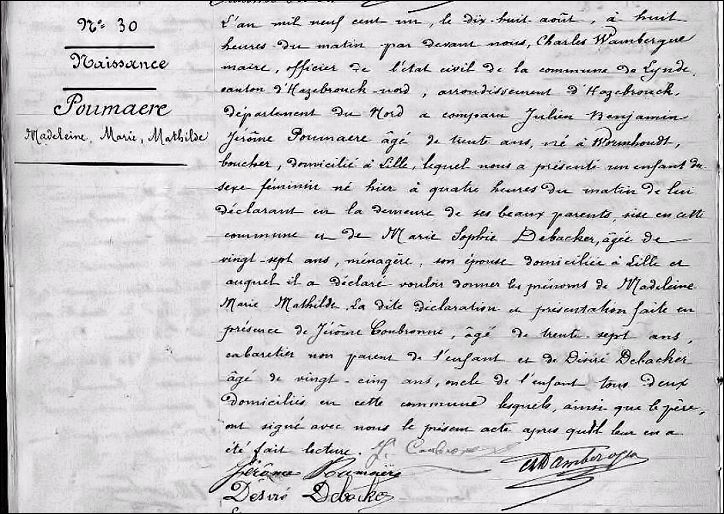 N° 30
Naissance
Poumaere
Madeleine, Marie, Mathilde
L'an mil neuf cent un, le dix-huit août, à huit
heures du matin par devant nous, Charles Wambergue
maire, officier de l'état civil de la commune de Lynde
canton d'Hazebrouck-nord, arrondissement d'Hazebrouck,
département du Nord a comparu Julien Benjamin
Jérôme Poumaere âgé de trente ans, né à Wormhoudt,
boucher, domicilié à Lille, lequel nous a présenté un enfant du
sexe féminin né hier à quatre heures du matin de lui
déclarant en la demeure de ses beaux parents, sise en cette
commune et de Marie Sophie Debacker, âgée de
vingt-sept ans, ménagère, son épouse domiciliée à Lille et
auquel il a déclaré vouloir donner les prénoms de Madeleine
Marie Mathilde. La dite déclaration et présentation faite en
présence de Jérôme Coubronne, âgé de trente-sept ans,
cabaretier non parent de l'enfant et de Désiré Debacker
âgé de vingt-cinq ans, oncle de l'enfant tous deux
domiciliés en cette commune lesquels, ainsi que le père,
ont signé avec nous le présent acte après qu'il leur en a
été fait lecture. J. Coubronne
Jérôme Poumaëre
Désiré Debacker